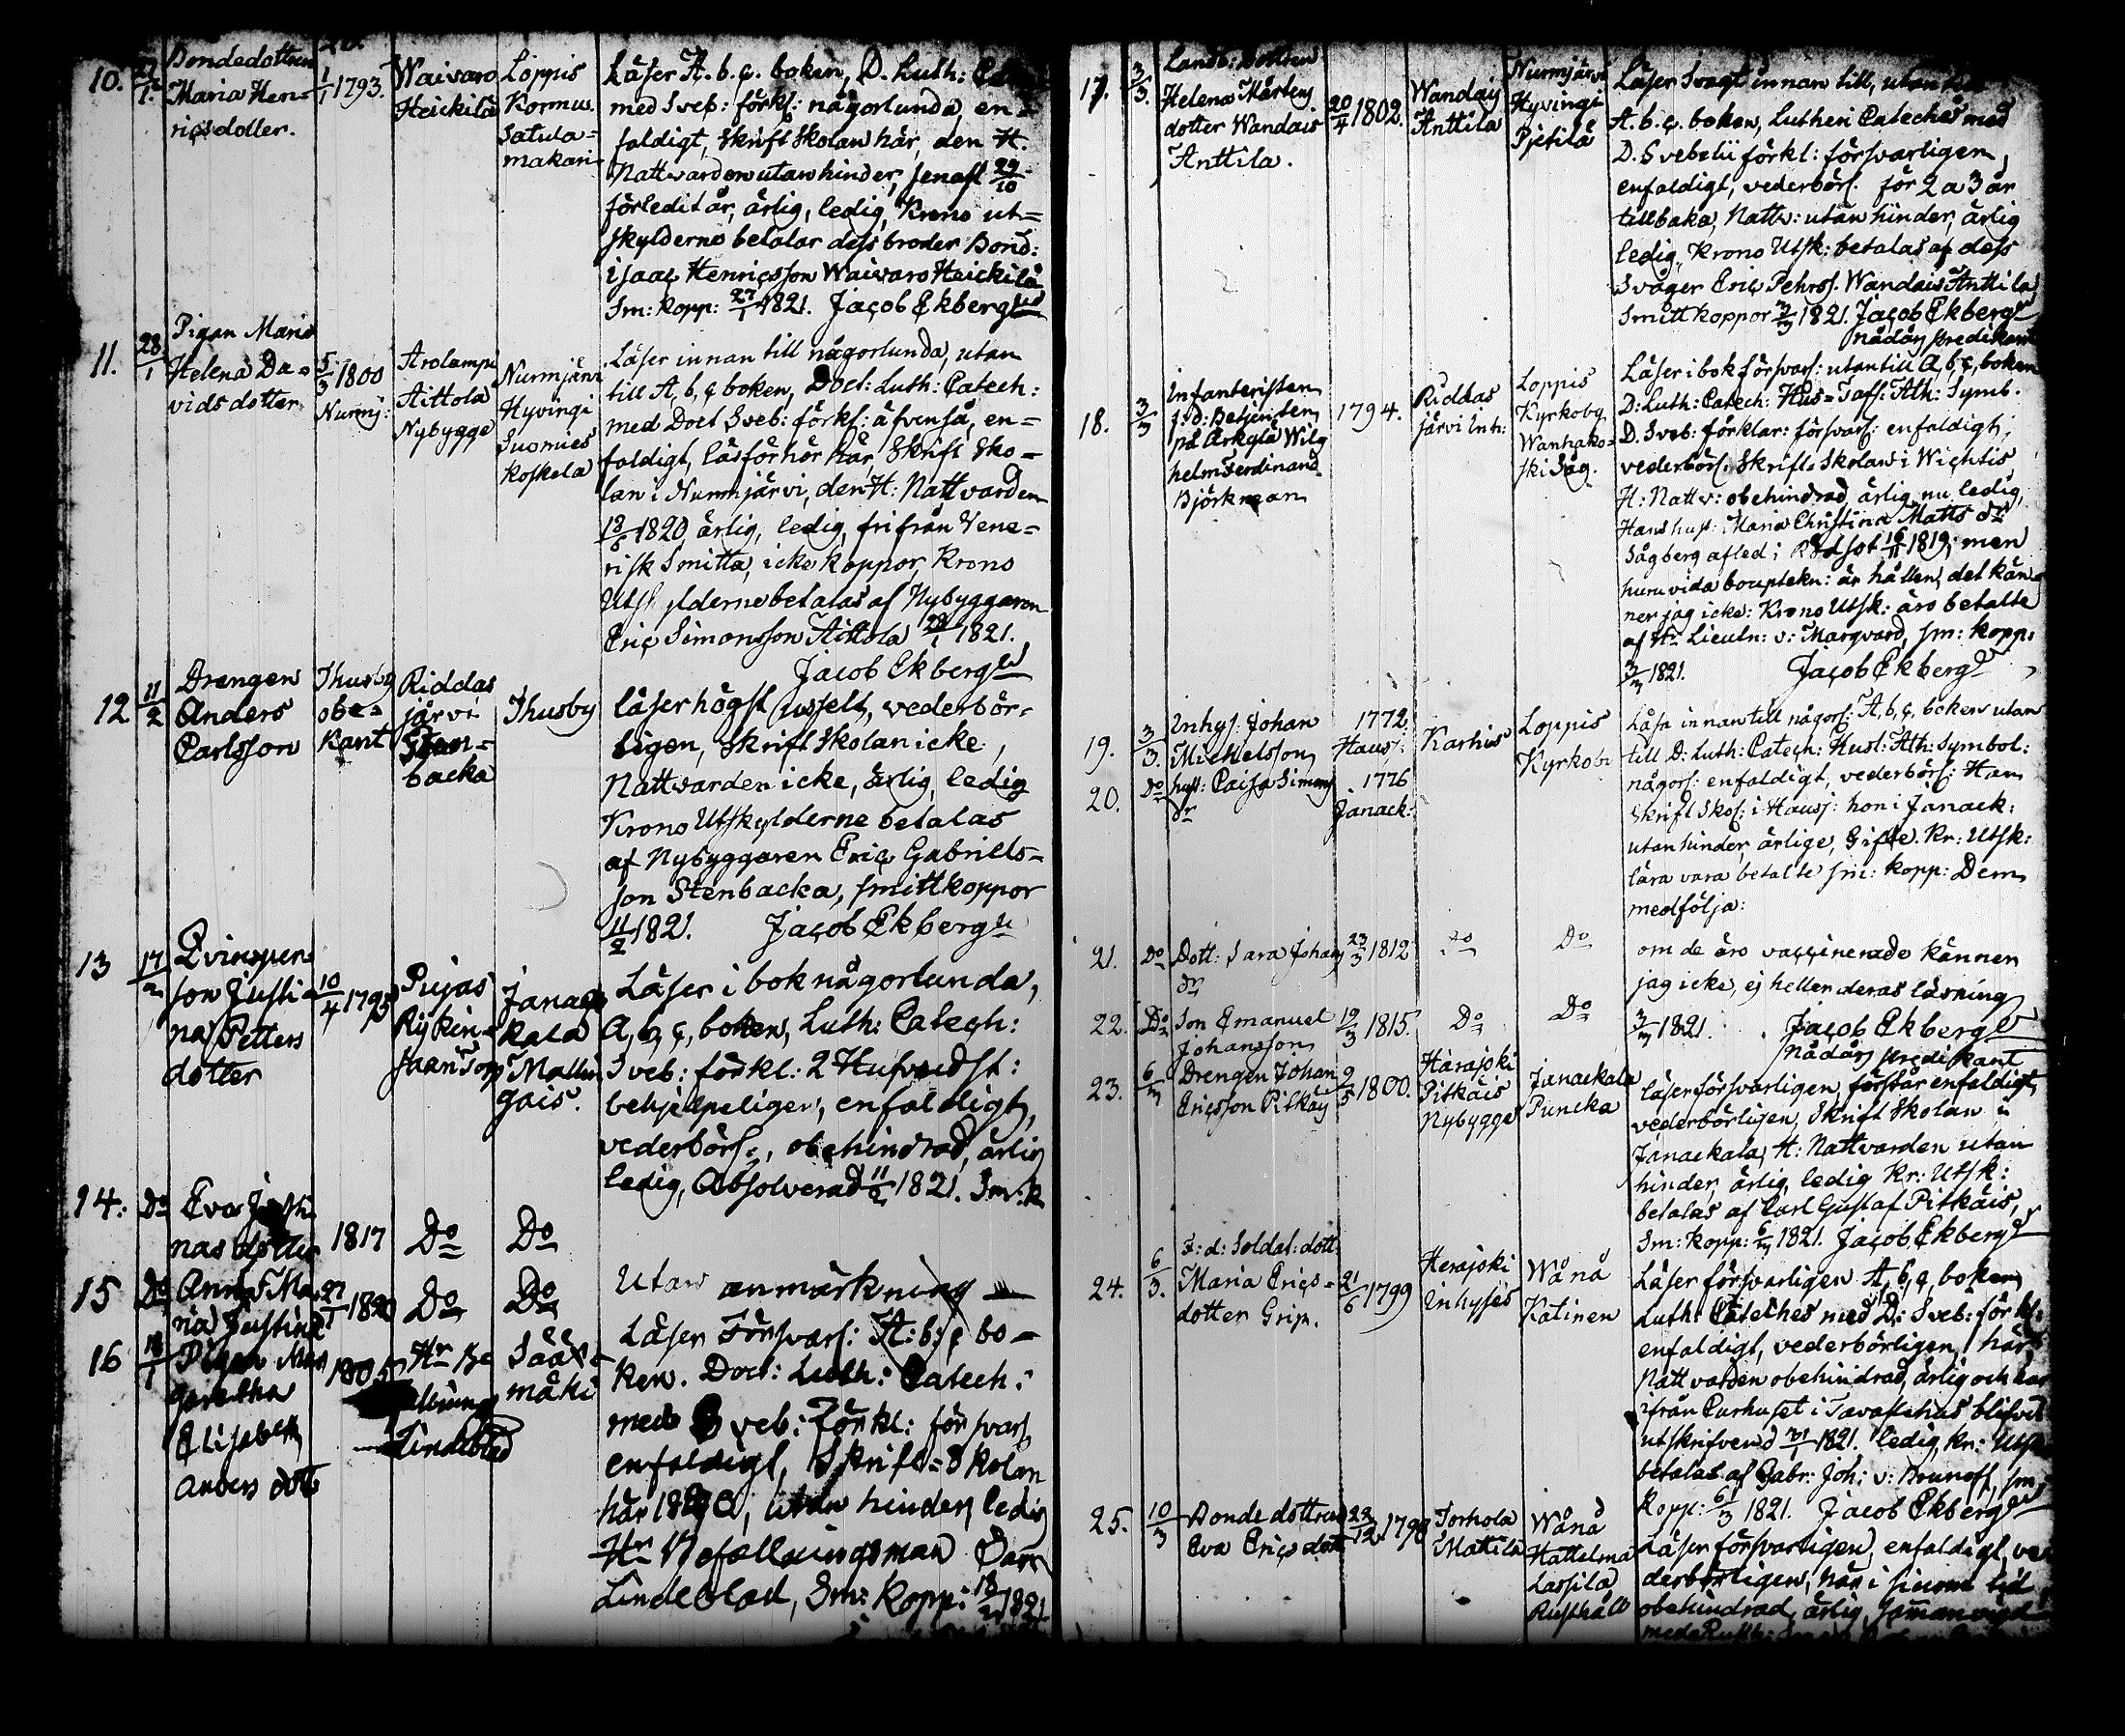 10. 27/1. Bondedottren Maria Hen=
ricsdotter.
1/1 1793.
Waivaro
Heickilä
Loppis
Kormu
Satula=
makari
Läser A. b. c. boken, D. Luth:
med Sveb: förkl: någorlunda, en=
faldigt, Skrift Skolan här, den H.
Nattvarden utan hinder, senast 29/10
förledit år, ärlig, ledig, Krono ut=
skylderne betalar dess broder Bond:
isaac Henricsson Waivaro Heickilä
Sm: kopp: 27/1 1821. Jacob Ekberg
11. 28/1
Pigan Maria
Helena Da=
vids dotter
5/3 1800
Nurmj:
Arolampi
Aittola
Nybygge
Nurmjärvi
Hyvingi
Suomies
Koskela
Läser innan till någorlunda, utan
till A, b, c boken, Doct: Luth: Catech:
med Doct Sveb: förkl: äfvenså, en=
faldigt, läsförhör här, Skrift Sko=
lan i Nurmjärvi, den H: Nattvarden
18/6 1820, ärlig, ledig, fri från Vene=
risk Smitta, icke koppor, Krono
Utskylderne betalas af Nybyggaren
Eric Simonsson Aittola 28/1 1821.
Jacob Ekberg
12 11/2
Drengen
Anders
Carlsson
Thusby
obe=
kant
Riddas
järvi
Sten=
backa
Thusby
läser högst usselt, vederbör=
ligen, Skrift Skolan icke,
Nattvarden icke, ärlig, ledig
Krono Utskylderne betalas
af Nybyggaren Eric Gabriels=
son Stenbacka, smittkoppor
11/2 1821. Jacob Ekberg
13 17/2
Qvinsper=
son Justi=
na Petters
dotter
10/4 1795
Pujas
Rykin=
saari Torp
Janac
kala
Mallin
gais.
Läser i bok någorlunda,
A, b, c, boken, Luth: Catech:
Sveb: förkl: 2 Hufvudst:
behjelpeligen, enfaldigt,
vederbörl:, obehindrad, ärlig
ledig, Absolverad 11/2 1821. Sm: k
14. Do
Eva Justi
nas dotter
1817
Do
Do
15 Do
Anna Ma
ria Justina
27/1 1820
Do
Do
Utan anmärkning
16 18/1
Pigan Mar
garetha
Elisabeth
Anders dotter
1805
Hr Be
Lindeblad
Sääx
mäki
Läser Försvarl: A: b: c bo=
ken. Doct: Luth: Catech:
med Sveb: Förkl: försvarl
enfaldigt, Skrift=Skolan
här 1820, utan hinder, ledig
Hr Befallningsman
Lindeblad, Sm: Kopp: 18/2 1821
17. 3/3.
Landb: Dottren
Helena Mårtens
dotter Wandais
Anttila.
20/4 1802.
Wandais
Anttila
Nurmjärvi
Hyvingi
Pjetilä
Läser Svagt innan till, utan till
A. b. c. boken, Lutheri Cateches med
D. Svebelii förkl: försvarligen,
enfaldigt, vederbörl. för 2 a 3 år
tillbaka, Nattv: utan hinder, ärlig
ledig, Krono Utsk: betalas af dess
Svåger Eric Pehrs. Wandais Anttila
Smittkoppor 3/3 1821. Jacob Ekberg
nådårs predikant
18. 3/3
Infanteristen
f: d: Betjenten
på Arkylä Wil
helm Ferdinand
Björkman
1794.
Riddas
järvi Inh:
Loppis
Kyrkoby
Wanhako=
ski Såg.
Läser i bok försvarl: utantill A, b, c, boken
D: Luth: Catech: Hus=Tafl: Ath: Symb.
D. Sveb: förklar: försvarl: enfaldigt,
vederbörl: Skrift Skolan i Wichtis,
H: Nattv: obehindrad ärlig, nu ledig,
Hans hust: Maria Christina Matts dr
Sågberg afled i Rödsot 10/11 1819; men
huruvida bouptekn: är hållen, det kän=
ner jag icke: Krono Utsk: äro betalte
af Hr Lieutn: v: Marqvard, sm: kopp:
3/3 1821. Jacob Ekberg
19. 3/3.
Inhys. Johan
Michelsson
1772.
Hausj:
Karhus
Loppis
Kyrkobi
20. Do
hust: Caisa Simons
dr
1776
Janack:
Läsa innan till någorl: A, b, c, boken utan
till D: Luth: Catech: Hust: Ath: Symbol:
någorl: enfaldigt, vederbörl: Han
Skrift Skol: i Hausj: hon i Janack:
utan hinder, ärlige, Gifte. Kr: Utsk:
lära vara betalte sm: kopp: Dem
medfölja:
21. Do
Dott: Sara Johans
dr
23/3 1812
Do
Do
om de äro vaccinerade känner
jag icke, ej heller deras läsning
22. Do
Son Emanuel
Johansson
19/3 1815.
Do
Do
3/3 1821. Jacob Ekberg
nådårs predikant
23. 6/3
Drengen Johan
Ericsson Pitkäis
9/5 1800.
Härajoki
Pitkäis
Nybygge
Janackala
Puncka
läser försvarligen, förstår enfaldigt,
vederbörligen, Skrift Skolan i
Janackala, H: Nattvarden utan
hinder, ärlig, ledig Kr: Utsk:
betalas af Carl Gustaf Pitkäis,
Sm: kopp: 6/3 1821. Jacob Ekberg
24. 6/3.
F: d: Soldat: dott:
Maria Erics=
dotter Grip.
21/6 1799
Herajoki
inhyses
Wånå
Katinen
Läser försvarligen A, b, c, boken
Luth: Cateches med D: Sveb: förkl:
enfaldigt, vederbörligen, här,
Nattvarden obehindrad, ärlig och har
ifrån Curhuset i Tavastehus blifvit
utskrifven 1821. ledig, kr: Utsk
betalas af Gabr: Joh: v: Brunoff, sm:
kopp: 6/3 1821. Jacob Ekberg
25. 10/3
Bonde dottren
Eva Erics dott
22/12 1798
Torhola
Mattila
Wånå
Hattelmala
Lassila
Rusthåll
Läser försvarligen, enfaldigt, ve
derbörligen, här i sinom tid
obehindrad, ärlig,